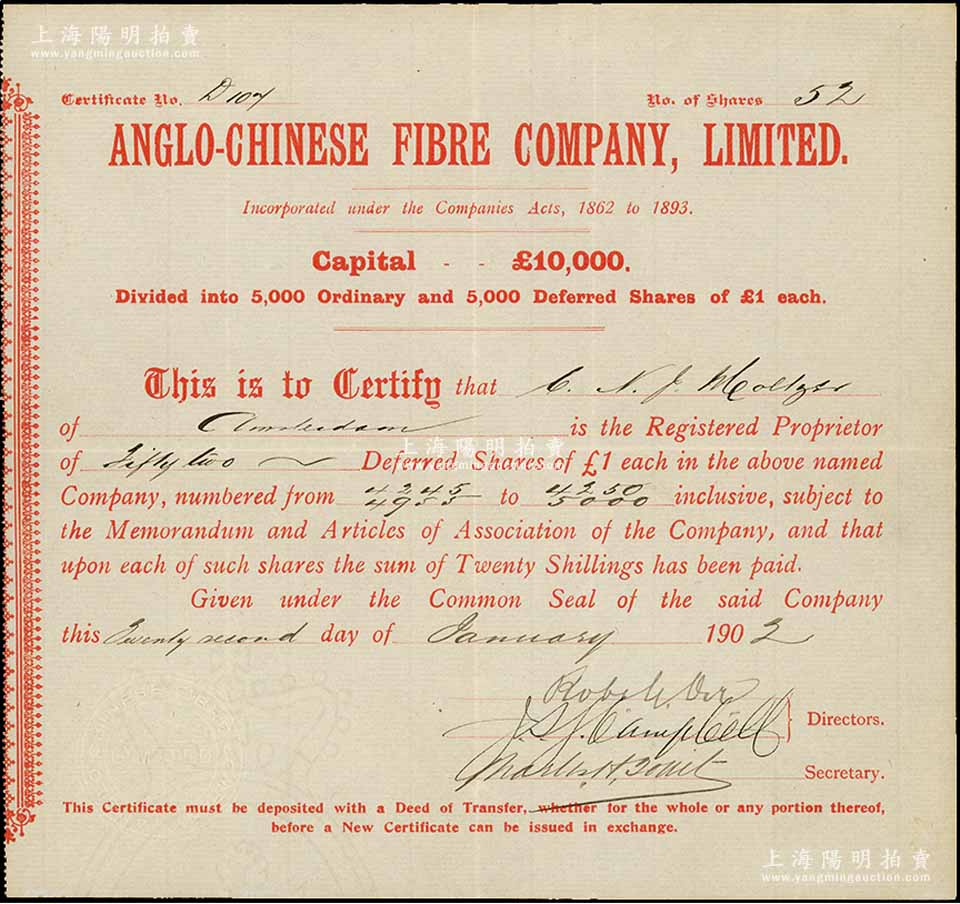 上海陽明拍賣
www.yangmingauction.com
Certificate No. D 107 No. of Shares 52
ANGLO-CHINESE FIBRE COMPANY, LIMITED.
Incorporated under the Companies Acts, 1862 to 1893.
Capital - - £10,000.
Divided into 5,000 Ordinary and 5,000 Deferred Shares of £1 each.
This is to Certify that C. N. J. Moltzer
of Amsterdam is the Registered Proprietor
上海陽明拍賣
www.yangmingauction.com
of Fifty two Deferred Shares of £1 each in the above named
Company, numbered from 4245 to 4250 inclusive, subject to
4955 5000
the Memorandum and Articles of Association of the Company, and that
upon each of such shares the sum of Twenty Shillings has been paid.
Given under the Common Seal of the said Company
this Twenty second day of January 1902
J. Campbell
Directors.
Secretary.
This Certificate must be deposited with a Deed of Transfer, whether for the whole or any portion thereof,
before a New Certificate can be issued in exchange.
上海陽明拍賣
www.yangmingauction.com